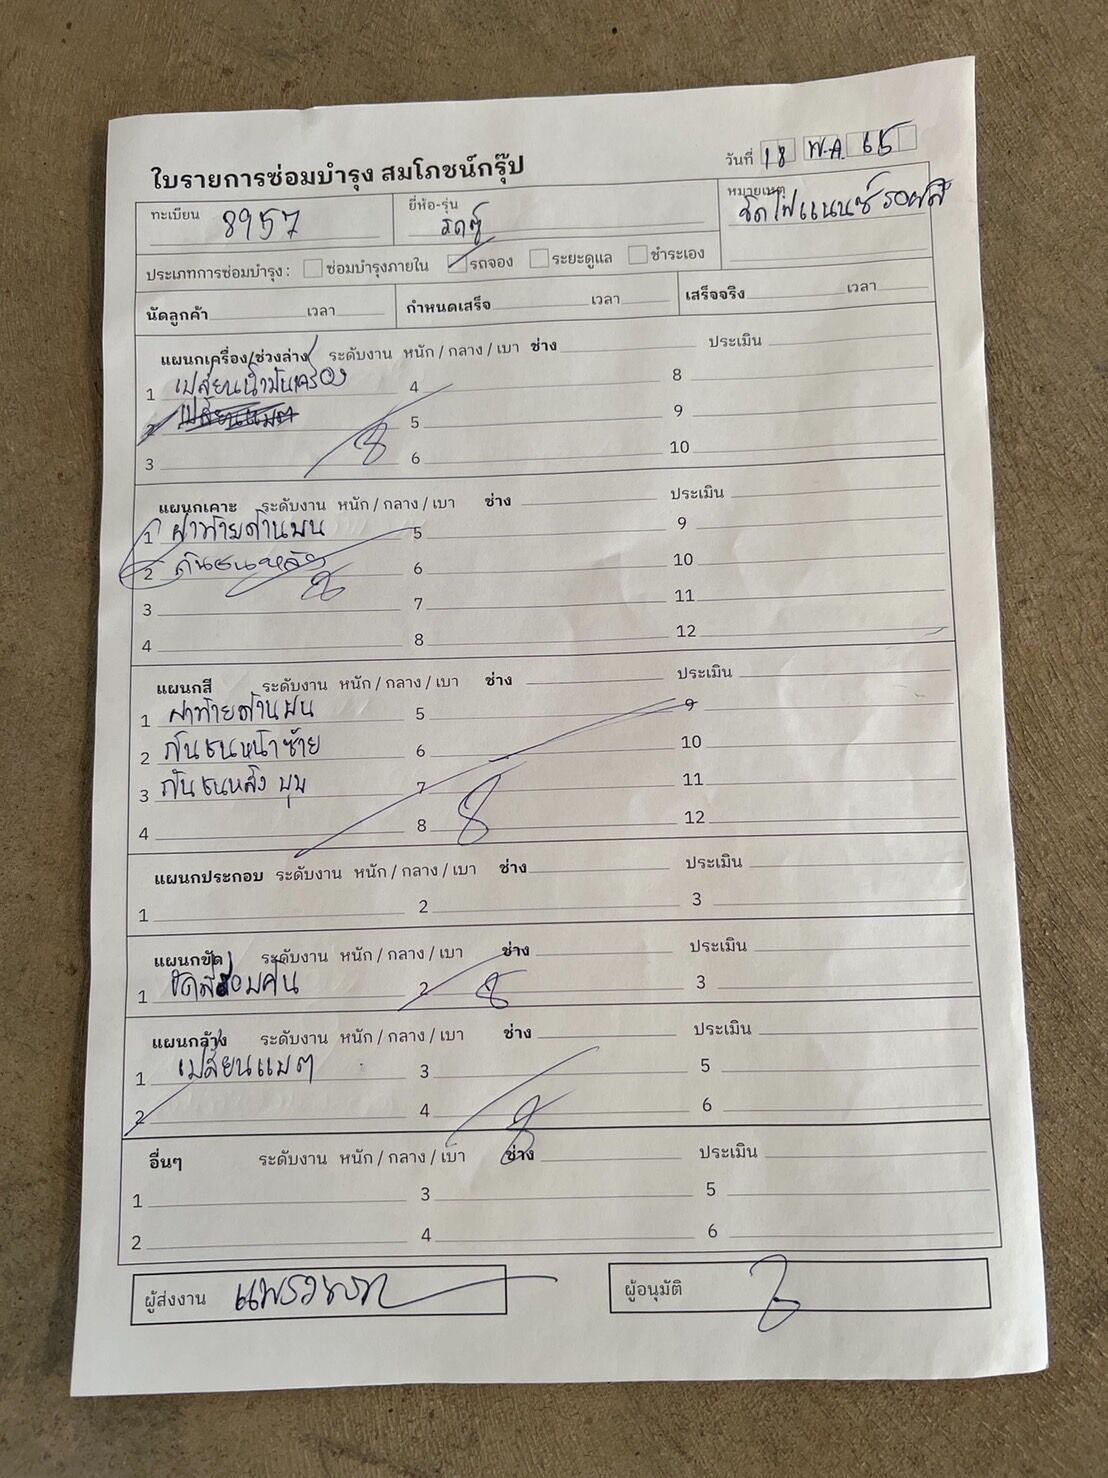 ใบรายการซ่อมบำรุง สมโภชน์กรุ๊ป
วันที่ 18 พ.ค. 65
ทะเบียน 8957 ยี่ห้อ-รุ่น หมายเหตุ
ประเภทการซ่อมบำรุง : ซ่อมบำรุงภายใน รถจอง ระยะดูแล ชำระเอง
นัดลูกค้า เวลา กำหนดเสร็จ เวลา เสร็จจริง เวลา
แผนกเครื่อง/ช่วงล่าง ระดับงาน หนัก / กลาง / เบา ช่าง ประเมิน
1 เปลี่ยนน้ำมันเครื่อง 4 8
2 เปลี่ยนแบต 5 9
3 6 10
แผนกเคาะ ระดับงาน หนัก / กลาง / เบา ช่าง ประเมิน
1 ฝาท้ายด้านบน 5 9
2 กันชนหลัง 6 10
3 7 11
4 8 12
แผนกสี ระดับงาน หนัก / กลาง / เบา ช่าง ประเมิน
1 ฝาท้ายด้านบน 5 9
2 กันชนหน้าซ้าย 6 10
3 กันชนหลัง มุม 7 11
4 8 12
แผนกประกอบ ระดับงาน หนัก / กลาง / เบา ช่าง ประเมิน
1 2 3
แผนกขัด ระดับงาน หนัก / กลาง / เบา ช่าง ประเมิน
1 ขัดสีรอบคัน 2 3
แผนกล้าง ระดับงาน หนัก / กลาง / เบา ช่าง ประเมิน
1 เปลี่ยนแบต 3 5
2 4 6
อื่นๆ ระดับงาน หนัก / กลาง / เบา ช่าง ประเมิน
1 3 5
2 4 6
ผู้ส่งงาน ผู้อนุมัติ